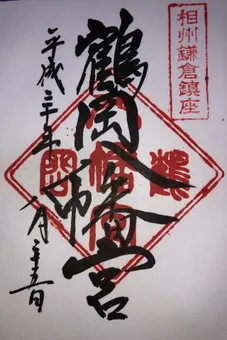 相州鎌倉鎮座
鶴岡八幡宮
平成三十年八月二十五日